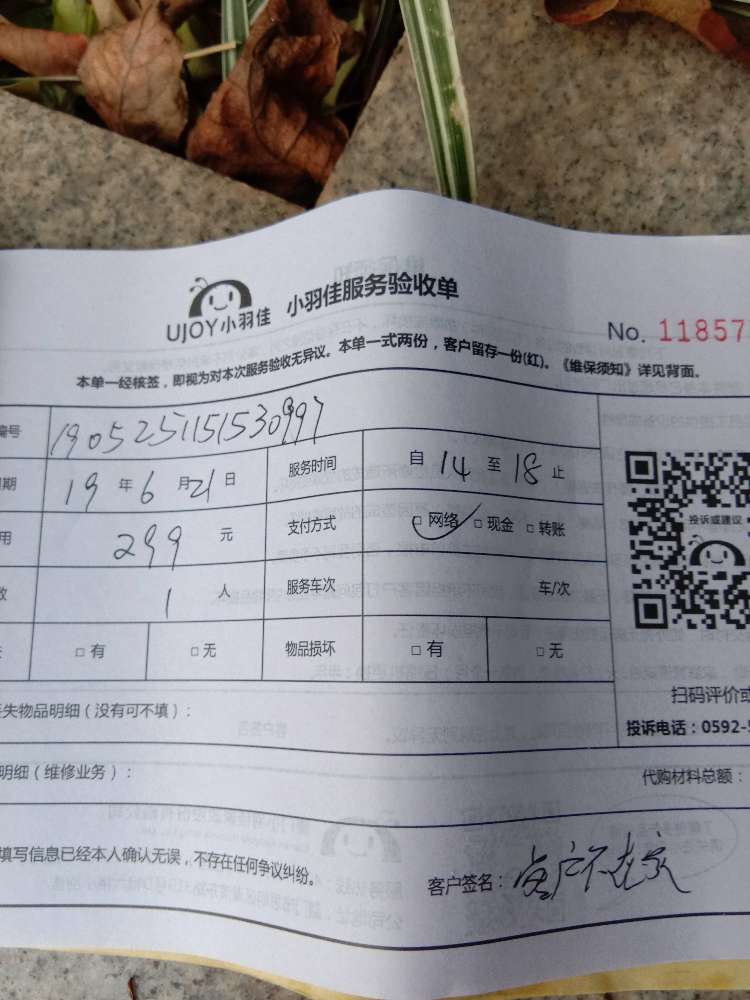 UJOY小羽佳 小羽佳服务验收单
No. 11857
本单一经核签，即视为对本次服务验收无异议。本单一式两份，客户留存一份(红)。《维保须知》详见背面。
编号 190525115153099
期 19 年 6 月 21 日 服务时间 自 14 至 18 止
用 299 元 支付方式 □ 网络 □ 现金 □ 转账
数 1 人 服务车次 车/次
□ 有 □ 无 物品损坏 □ 有 □ 无
投诉或建议
扫码评价或
失物品明细（没有可不填）：
投诉电话：0592-5
明细（维修业务）：
代购材料总额：
填写信息已经本人确认无误，不存在任何争议纠纷。
客户签名： 客户不在家